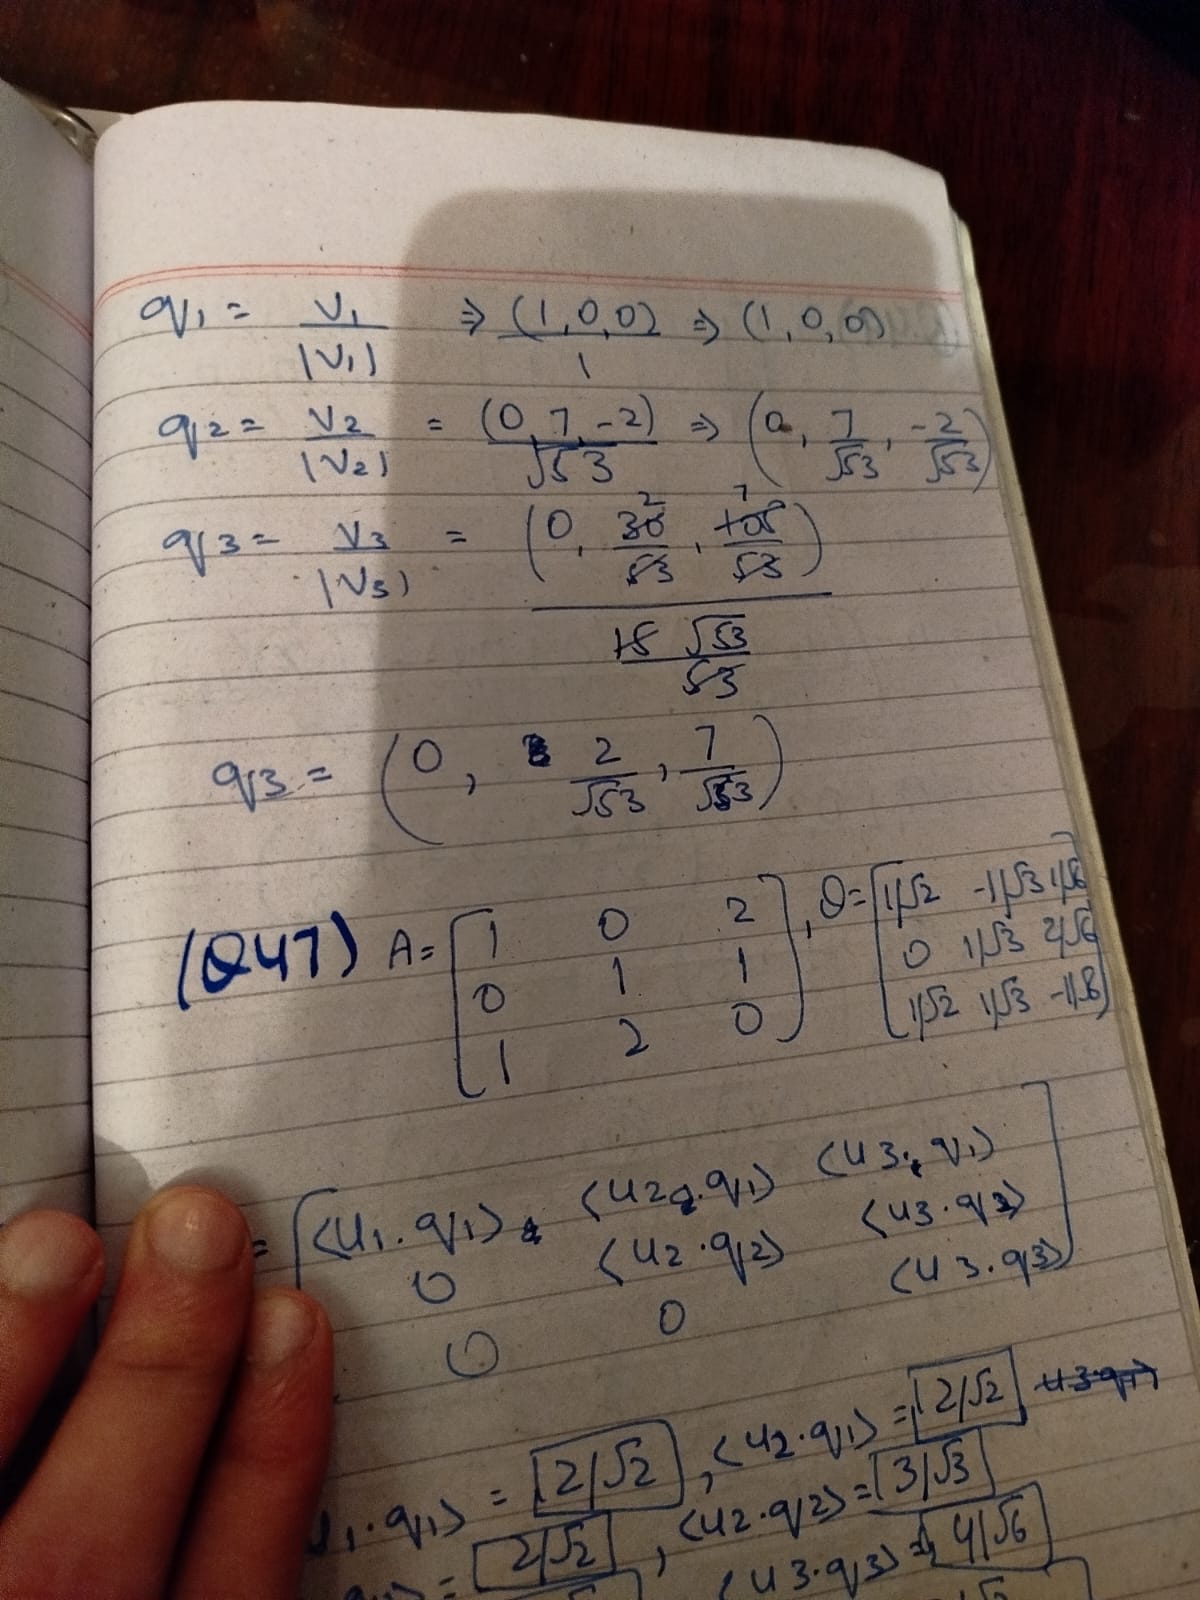 q1 = V1/|V1| ⇒ (1,0,0)/1 ⇒ (1,0,0)
q2 = V2/|V2| = (0,7,-2)/√53 ⇒ (0, 7/√53, -2/√53)
q3 = V3/|V3| = (0, 30/53, 105/53) / (15√53/53)
2 7
q3 = (0, 2/√53, 7/√53)
(Q47) A = [1 0 2, Q = [1/√2 -1/√3 1/√6
0 1 1 0 1/√3 2/√6
1 2 0] 1/√2 1/√3 -1/√6]
= [⟨u1.q1⟩ ⟨u2.q1⟩ ⟨u3.q1⟩
0 ⟨u2.q2⟩ ⟨u3.q2⟩
0 0 ⟨u3.q3⟩]
u1.q1⟩ = 2/√2, ⟨u2.q1⟩ = 2/√2
= 2/√2, ⟨u2.q2⟩ = 3/√3
⟨u3.q3⟩ = 4/√6